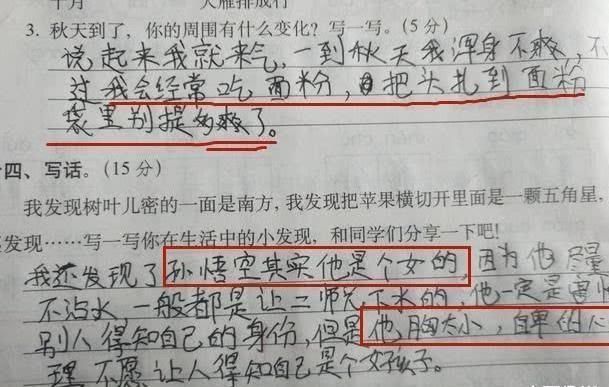 十月 大雁排成行
3. 秋天到了，你的周围有什么变化？写一写。(5分)
说起来我就来气，一到秋天我浑身不爽，不
过我会经常吃面粉，把头扎到面粉
袋里别提多爽了。
十四、写话。(15分)
我发现树叶儿密的一面是南方，我发现把苹果横切开里面是一颗五角星，
发现……写一写你在生活中的小发现，和同学们分享一下吧!
我还发现了孙悟空其实他是个女的，因为他尽量
不沾水，一般都是让二师兄下水的，他一定是害怕
别人得知自己的身份，但是他胸太小，自卑的心
理不愿让人得知自己是个女孩子。